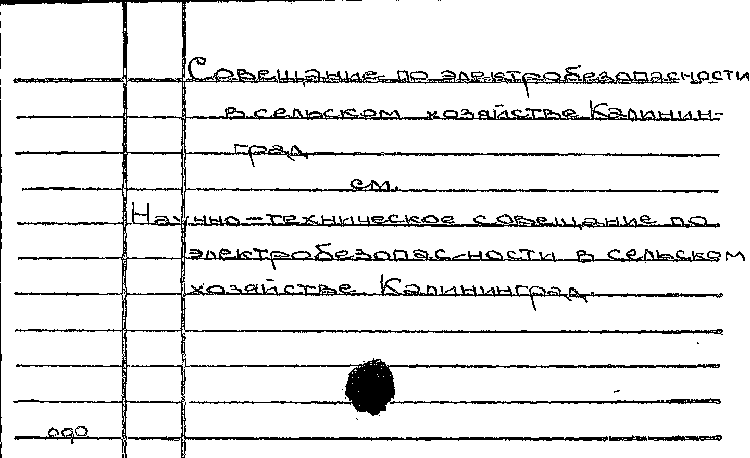 Совещание по электробезопасности
в сельском хозяйстве Калинин-
град
см.
Научно-техническое совещание по
электробезопас-ности в сельском
хозяйстве Калининград.